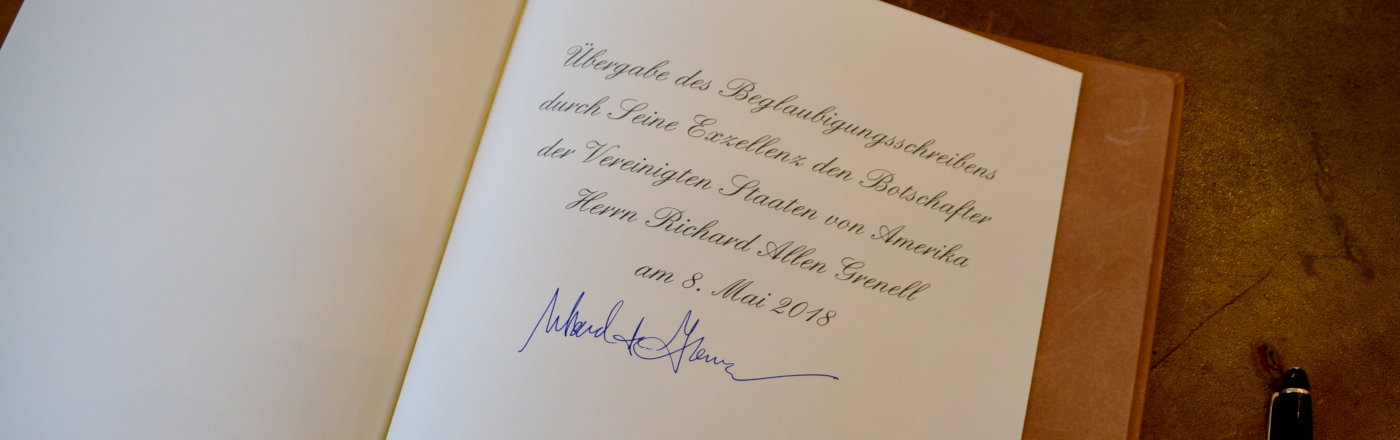 Übergabe des Beglaubigungsschreibens
durch Seine Exzellenz den Botschafter
der Vereinigten Staaten von Amerika
Herrn Richard Allen Grenell
am 8. Mai 2018